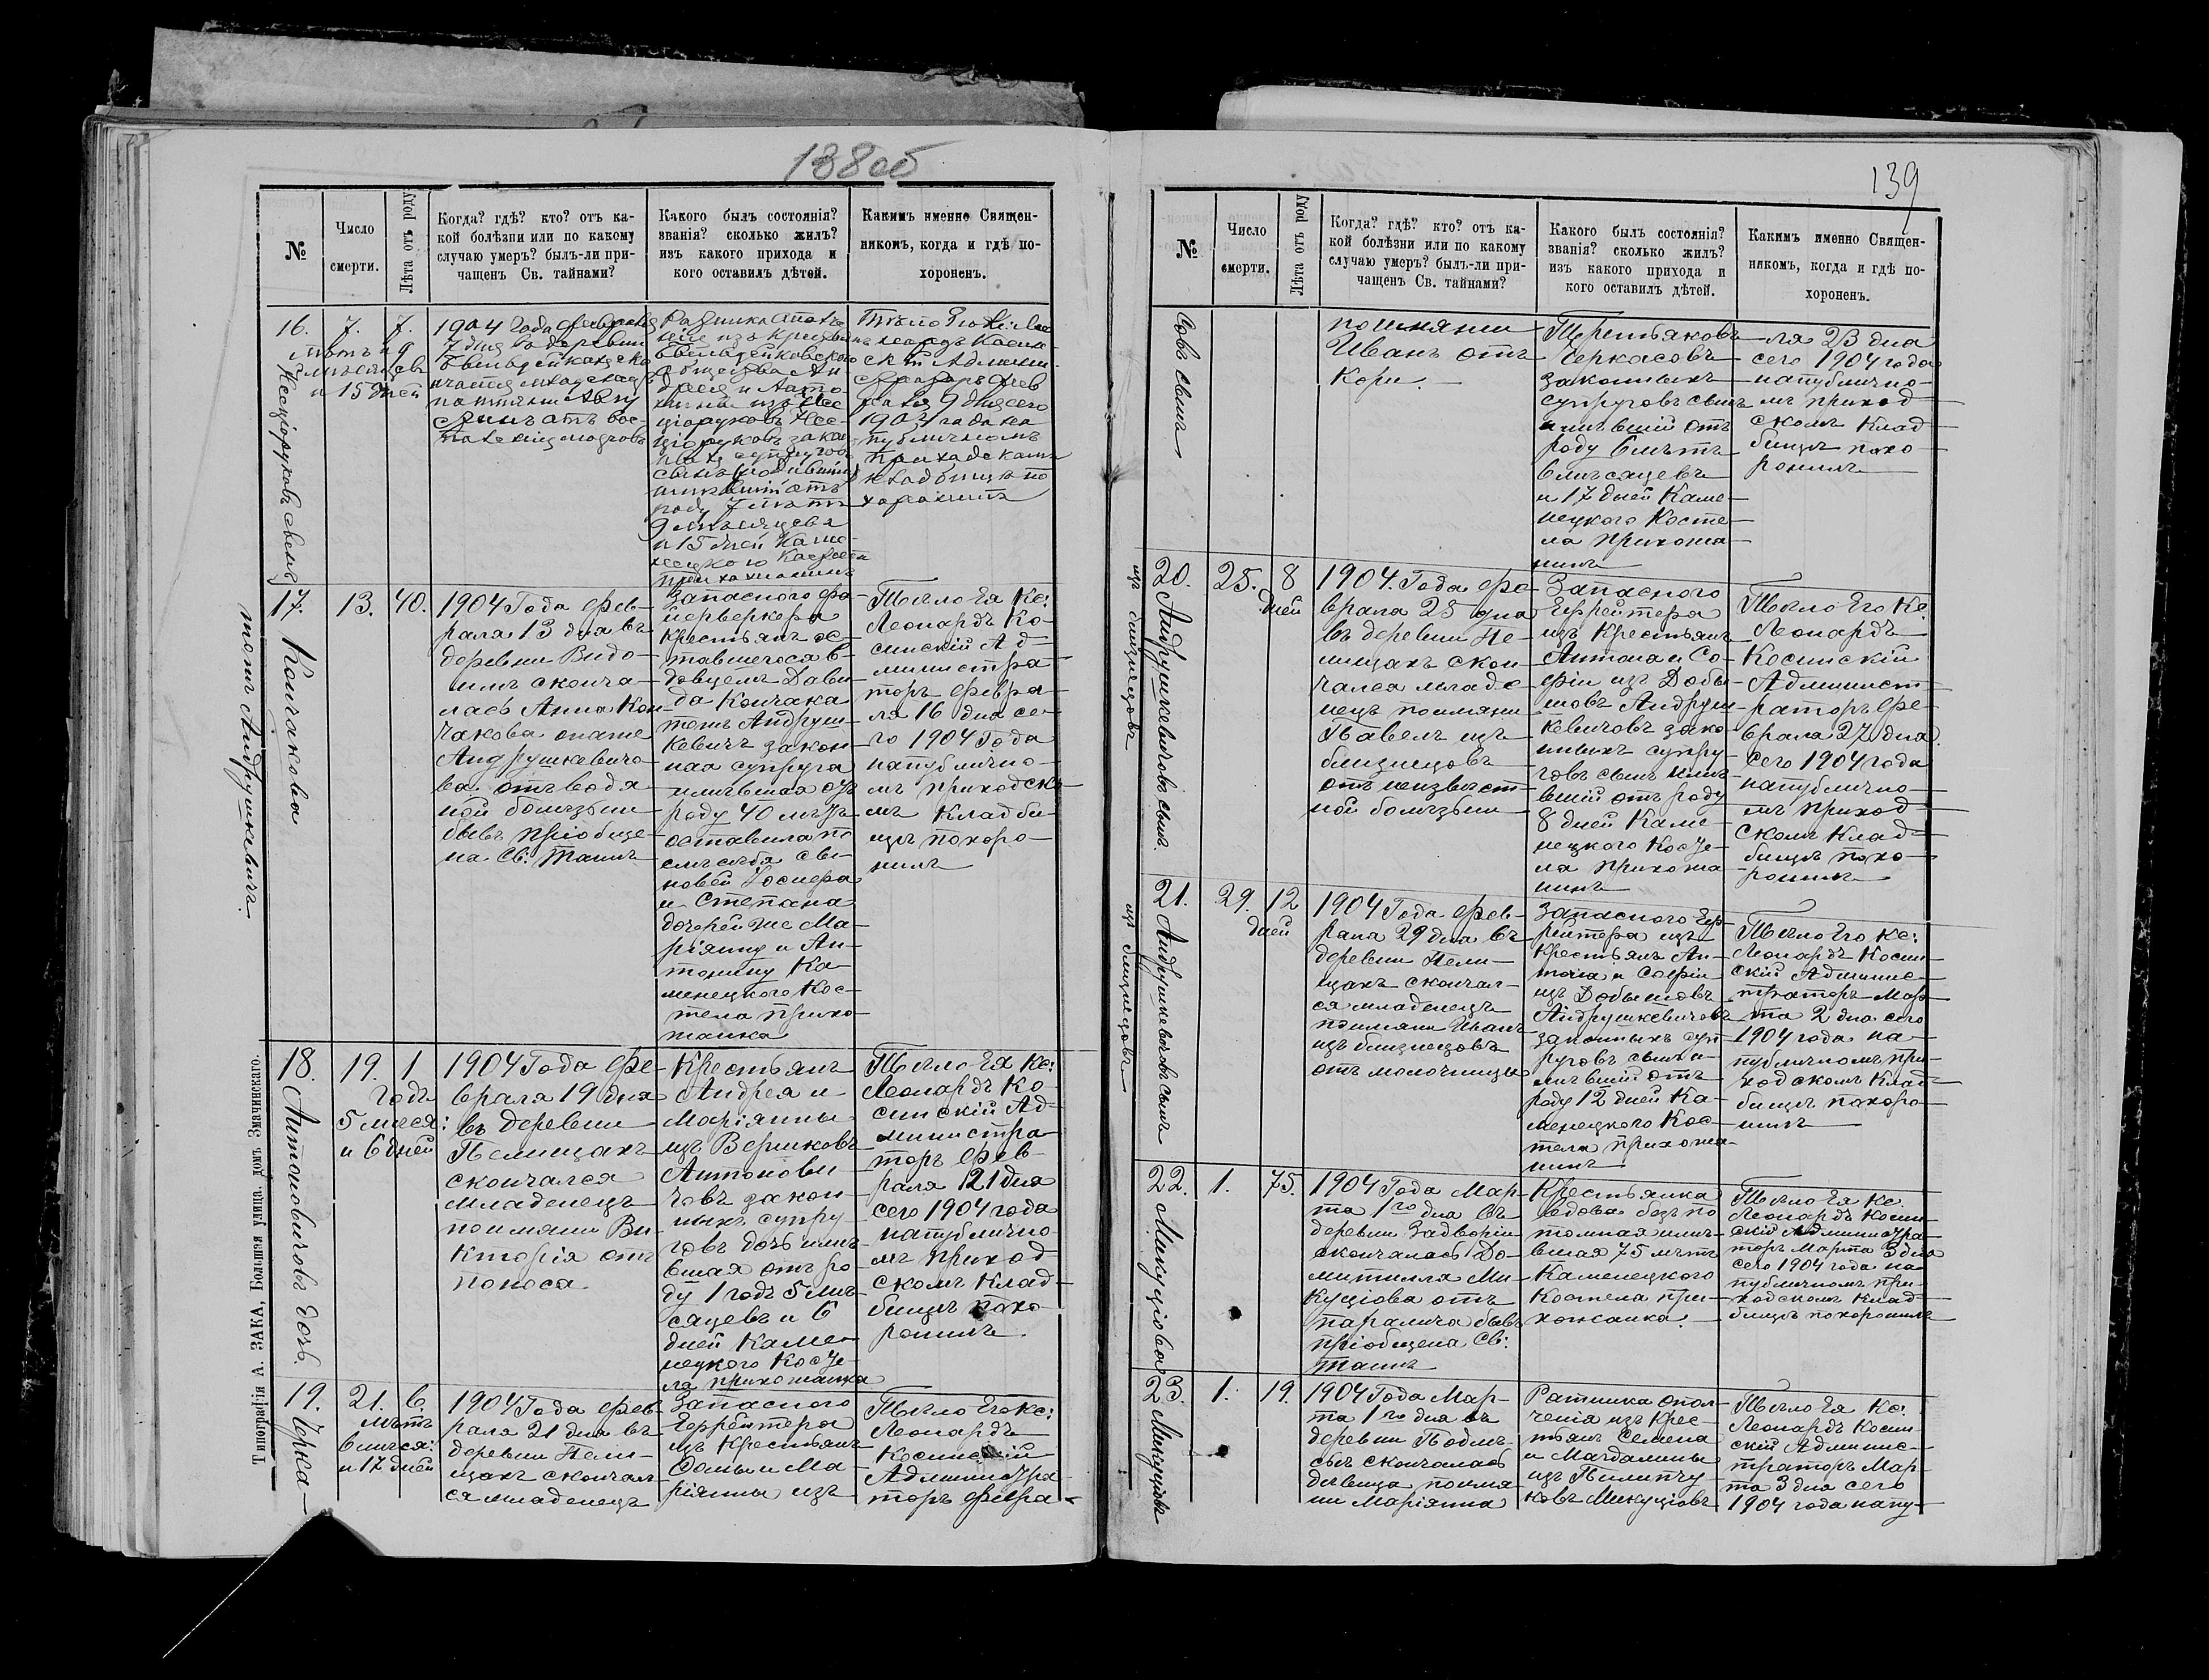 138об
№
Число
смерти.
Лѣта отъ роду
Когда? гдѣ? кто? отъ ка-
кой болѣзни или по какому
случаю умеръ? былъ-ли при-
чащенъ Св. тайнами?
Какого былъ состоянія?
званія? сколько жилъ?
изъ какого прихода и
кого оставилъ дѣтей.
Какимъ именно Священ-
никомъ, когда и гдѣ по-
хороненъ.
16.
7.
7.
лѣтъ 9
мѣсяцевъ
и 15 дней
1904 Года февраля
7 дня въ деревни
младенецъ
по имяни
отъ вос-
изъ Крестьянъ
общества
сынъ
имѣвшій отъ
роду 7 лѣтъ
9 мѣсяцевъ
и 15 дней Каме-
нецкого Костела
прихожанинъ
Тѣло Его Кс: Лео-
нардъ Косин-
скій Админи-
страторъ фев
раля 9 дня сего
1904 года на
публичномъ
приходскомъ
кладбищѣ по
хоронилъ
17.
Кончакова
тожъ Андрушкевичъ.
13.
40.
1904 Года фев-
раля 13 дня въ
деревни Видо-
млѣ сконча-
лась Анна Кон-
чакова онаже
Андрушкевичо-
ва отъ водя-
ной болѣзни
бывъ пріобще-
на Св: Таинъ
Запасного фе-
йерверкера
Крестьянъ ос-
тавшегося в-
довцемъ Дави-
да Кончака
тожъ Андруш-
кевичъ закон-
ная супруга
имѣвшая отъ
роду 40 лѣтъ
оставила по
слѣ себя сы-
новей Іосифа
и Степана
дочерей же Ма-
ріянну и Ан-
тонину Ка-
менецкого Кос-
тела прихо-
жанка
Тѣло Ея Кс:
Леонардъ Ко-
синскій Ад-
министра-
торъ февра-
ля 16 дня се-
го 1904 Года
на публично-
мъ приходско-
мъ кладби-
щѣ похоро-
нилъ
18.
Антоновичовъ дочь.
19.
1
годъ
5 мѣся:
и 6 дней
1904 Года фе-
враля 19 дня
въ деревни
Пелищахъ
скончался
младенецъ
по имяни Ви-
кторія отъ
поноса.
Крестьянъ
Андрея и
Маріянны
изъ Верниковъ
Антонови-
човъ закон-
ныхъ супру-
говъ дочь имѣ-
вшая отъ ро-
ду 1 годъ 5 мѣ-
сяцевъ и 6
дней Каме-
нецкого Косте-
ла прихожанка
Тѣло Ея Кс:
Леонардъ Ко-
синскій Ад-
министра-
торъ фев-
раля 21 дня
сего 1904 года
на публично-
мъ приход-
скомъ клад-
бищѣ похо-
ронилъ.
19.
Черка-
21.
6.
лѣтъ
6 мѣся:
и 17 дней
1904 Года фев-
раля 21 дня въ
деревни Пели-
щахъ скончал-
ся младенецъ
Запасного
Ефрейтера
изъ Крестьянъ
Фомы и Ма-
ріянны изъ
Тѣло Его Кс:
Леонардъ
Косинскій
Администра-
торъ февра-
Типографія А. ЗАКА, Большая улица, домъ Змачинскаго.
139
№
Число
смерти.
Лѣта отъ роду
Когда? гдѣ? кто? отъ ка-
кой болѣзни или по какому
случаю умеръ? былъ-ли при-
чащенъ Св. тайнами?
Какого былъ состоянія?
званія? сколько жилъ?
изъ какого прихода и
кого оставилъ дѣтей.
Какимъ именно Священ-
никомъ, когда и гдѣ по-
хороненъ.
совъ сынъ
по имяни
Иванъ отъ
Кори.
Терешьяковъ
Черкасовъ
законныхъ
супруговъ сынъ
имѣвшій отъ
роду 6 лѣтъ
6 мѣсяцевъ
и 17 дней Каме-
нецкого Косте-
ла прихожа-
нинъ
ля 23 дня
сего 1904 года
на публично-
мъ приход-
скомъ клад-
бищѣ похо-
ронилъ
20.
Андрушкевичовъ сынъ
изъ близнецовъ
25.
8
дней
1904. Года фе-
враля 25 дня
въ деревни Пе-
лищахъ скон-
чался младе-
нецъ по имяни
Павелъ изъ
близнецовъ
отъ неизвѣст-
ной болѣзни
Запасного
Ефрейтера
изъ Крестьянъ
Антона и Со-
фіи изъ Добы-
шовъ Андруш-
кевичовъ зако-
нныхъ супру-
говъ сынъ имѣ-
вшій отъ роду
8 дней Каме-
нецкого Косте-
ла прихожа-
нинъ
Тѣло Его Кс:
Леонардъ
Косинскій
Админист-
раторъ фе-
враля 27 дня
сего 1904 года
на публично-
мъ приход-
скомъ клад-
бищѣ похо-
ронилъ
21.
Андрушкевичовъ сынъ
изъ близнецовъ
29.
12
дней
1904 Года фев-
раля 29 дня въ
деревни Пели-
щахъ скончал-
ся младенецъ
по имяни Иванъ
изъ близнецовъ
отъ молочницы
Запасного Еф-
рейтера изъ
Крестьянъ Ан-
тона и Софіи
изъ Добышовъ
Андрушкевичовъ
законныхъ суп-
руговъ сынъ и-
мѣвшій отъ
роду 12 дней Ка-
менецкого Кос-
тела прихожа-
нинъ
Тѣло Его Кс:
Леонардъ Косин-
скій Админис-
траторъ Мар-
та 2 дня сего
1904 года на
публичномъ при-
ходскомъ клад-
бищѣ похоро-
нилъ
22.
Микуціова
1.
75.
1904 Года Мар-
та 1го дня въ
деревни Задворіи
скончалась До-
митилля Ми-
куціова отъ
паралича бывъ
пріобщена Св:
Таинъ
Крестьянка
вдова безъ по
томная имѣ-
вшая 75 лѣтъ
Каменецкого
Костела при-
хожанка.
Тѣло Ея Кс:
Леонардъ Косин-
скій Администра-
торъ Марта 3 дня
сего 1904 года на
публичномъ при-
ходскомъ клад-
бищѣ похоронилъ
23.
Микуціовъ
1.
19.
1904 Года Мар-
та 1го дня въ
деревни Подлѣ-
сьѣ скончалась
дѣвица по имя-
ни Маріянна
Ратника опол-
ченія изъ Крес-
тьянъ Семена
и Магдалины
изъ Пилипчу-
ковъ Микуціовъ
Тѣло Ея Кс:
Леонардъ Косин-
скій Админис-
траторъ Мар-
та 3 дня сего
1904 года на пу-